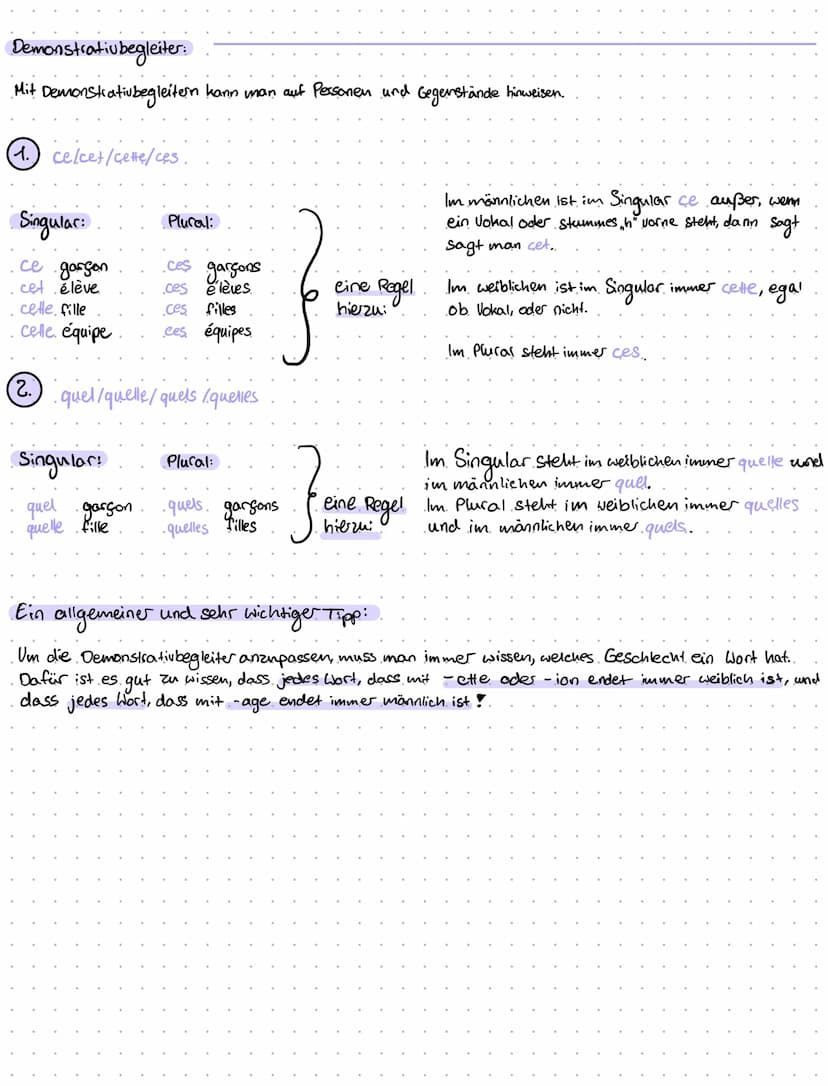 Demonstrativbegleiter:
Mit Demonstrativbegleitern kann man auf Personen und Gegenstände hinweisen.
1. ce/cet/cette/ces
Singular: Plural:
ce garçon ces garçons
cet élève ces élèves
cette fille ces filles
cette équipe ces équipes
eine Regel
hierzu:
Im männlichen ist im Singular ce außer, wenn
ein Vokal oder stummes „h" vorne steht, dann sagt
sagt man cet.
Im weiblichen ist im Singular immer cette, egal
ob Vokal, oder nicht.
Im Plural steht immer ces.
2. quel/quelle/quels/quelles
Singular: Plural:
quel garçon quels garçons
quelle fille quelles filles
eine Regel
hierzu:
Im Singular steht im weiblichen immer quelle und
im männlichen immer quel.
Im Plural steht im weiblichen immer quelles
und im männlichen immer quels.
Ein allgemeiner und sehr wichtiger Tipp:
Um die Demonstrativbegleiter anzupassen, muss man immer wissen, welches Geschlecht ein Wort hat.
Dafür ist es gut zu wissen, dass jedes Wort, dass mit -ette oder -ion endet immer weiblich ist, und
dass jedes Wort, dass mit -age endet immer männlich ist!